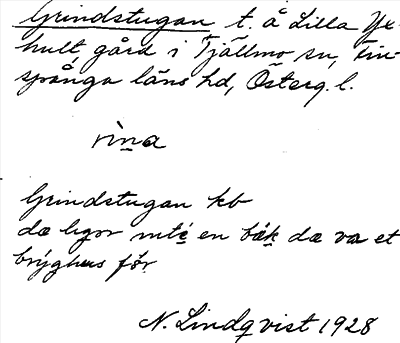 Grindstugan t. å Lilla Yx-
hult, gård i Tjällmo sn, Fin-
spånga läns hd, Österg. l.
rìna
Grindstugan kb
dæ ligor inté en bák dæ va et
brýghus før
N. Lindqvist 1928